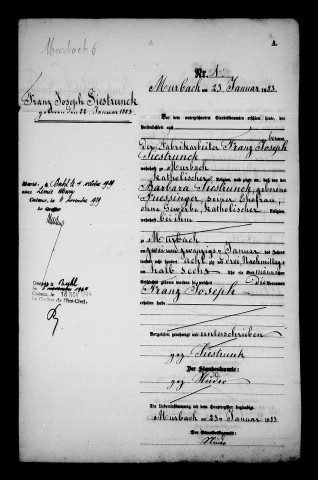 Murbach 6
A.
Nr. 1.
Murbach am 23 Januar 1883.
Franz Joseph Siestrunck
geboren den 22 Januar 1883.
Vor dem unterzeichneten Standesbeamten erschien heute, der
Persönlichkeit nach
kannt,
der Fabrikarbeiter Franz Joseph
Siestrunck
wohnhaft zu Murbach
katholischer Religion, und zeigte an, daß von der
Barbara Siestrunck, geborene
seiner Ehefrau,
ohne Gewerbe, katholischer Religion,
wohnhaft bei ihm
zu Murbach
am zwei und zwanzigsten Januar des Jahres
tausend acht hundert achtzig und drei Nachmittags
um halb sechs Uhr ein Kind männlichen
Geschlechts geboren worden sei, welches die Vornamen
Franz Joseph
erhalten habe
Marié à Buhl le 4 octobre 1919
avec
le novembre 1919
Le Greffier
Décédé à Buhl
le novembre 1940
Colmar, le
Le Greffier de l'Etat-Civil:
Vorgelesen, genehmigt und unterschrieben
gez Siestrunck
Der Standesbeamte:
gez
Die Uebereinstimmung mit dem Hauptregister beglaubigt
Murbach am 23 ten Januar 1883.
Der Standesbeamte.